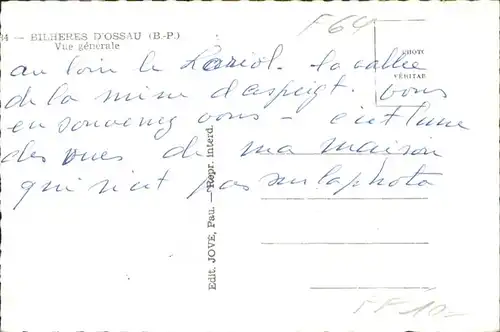 F64
34 — BILHERES D'OSSAU (B.-P.)
Vue générale
PHOTO
VÉRITAB
au loin le Lariol. la vallée
de la mine d'aspeigt. vous
en souvenez vous — c'est l'une
des vues de ma maison
qui n'est pas sur la photo
Edit. JOVÉ, Pau. — Repr. interd.
FF10=